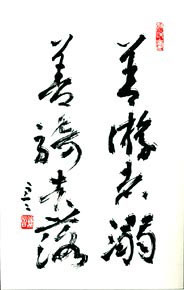 善游者溺
善騎者落